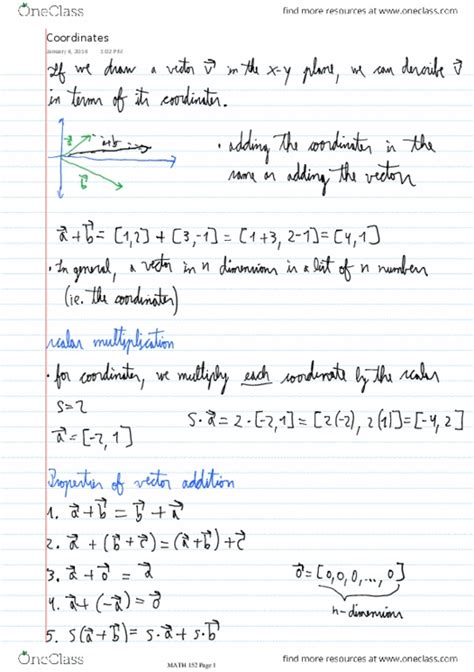 OneClass
find more resources at www.oneclass.com
Coordinates
January 6, 2014 1:02 PM
If we draw a vector v⃗ in the x-y plane, we can describe v⃗
in terms of its coordinates.
a⃗
a+b
b⃗
• adding the coordinates is the
same as adding the vectors
a⃗ + b⃗ = [1,2] + [3,-1] = [1+3, 2-1] = [4,1]
• In general, a vector in n dimensions is a list of n numbers
(ie. the coordinates)
scalar multiplication
• for coordinates, we multiply each coordinate by the scalar
s=2
s·a⃗ = 2·[-2,1] = [2(-2), 2(1)] = [-4,2]
a⃗ = [-2,1]
Properties of vector addition
1. a⃗ + b⃗ = b⃗ + a⃗
2. a⃗ + (b⃗ + c⃗) = (a⃗ + b⃗) + c⃗
3. a⃗ + 0⃗ = a⃗
0⃗ = [0,0,0,...,0]
4. a⃗ + (-a⃗) = 0⃗
n-dimensions
5. s(a⃗ + b⃗) = s·a⃗ + s·b⃗
MATH 152 Page 1
OneClass
find more resources at www.oneclass.com